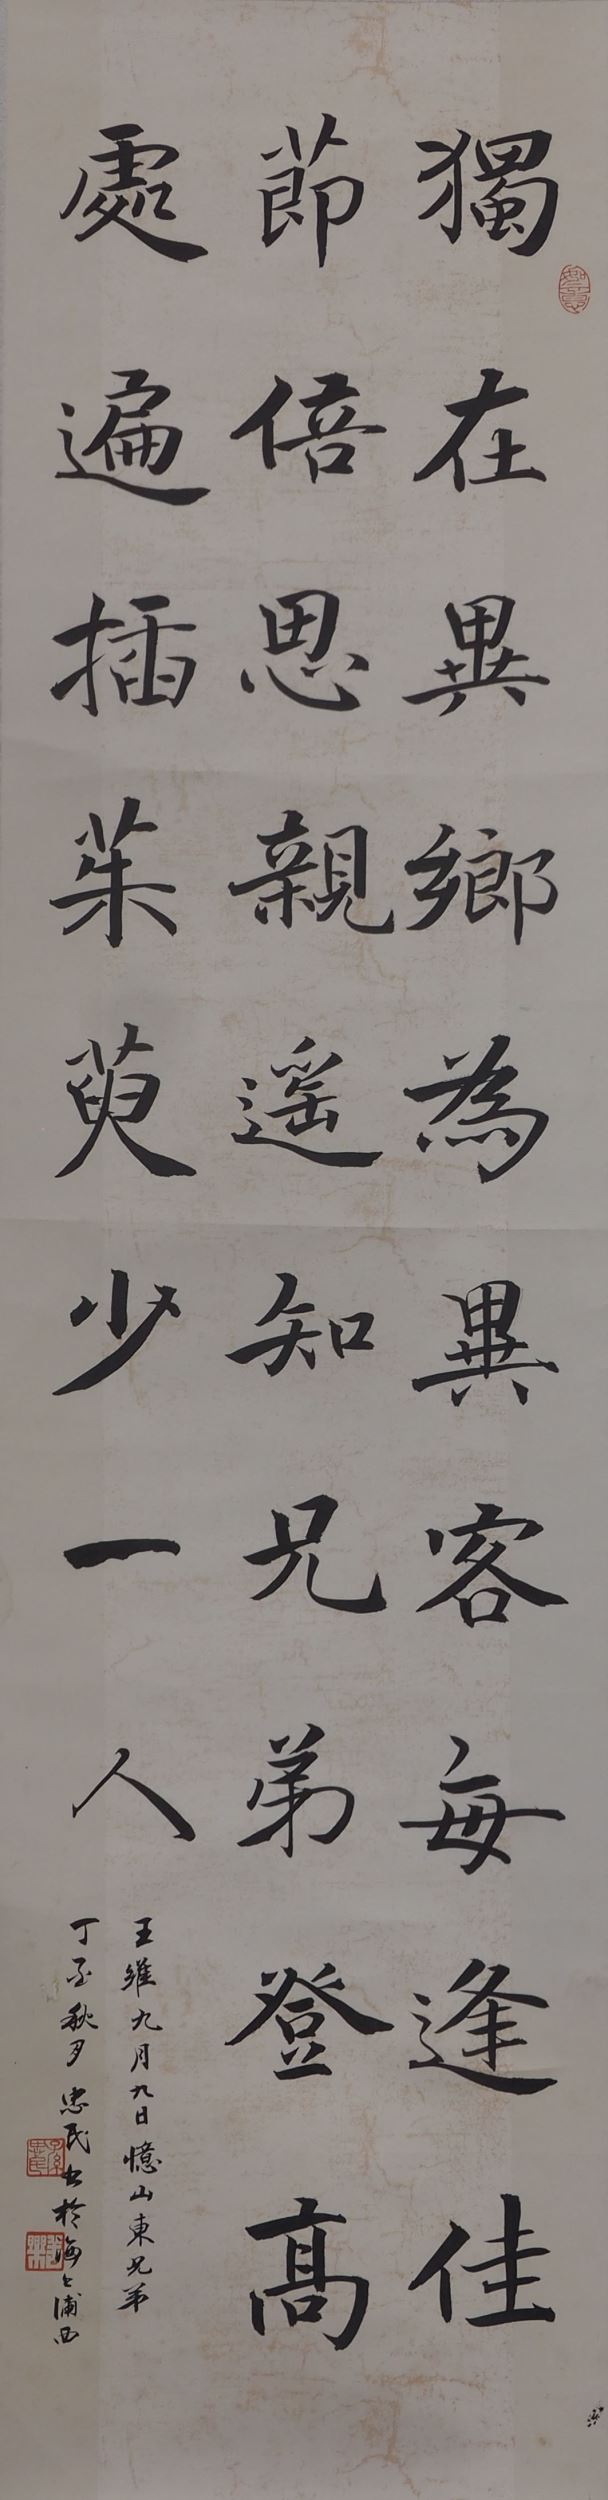 獨在異鄉為異客每逢佳
節倍思親遥知兄弟登高
處遍插茱萸少一人
王維九月九日憶山東兄弟
丁酉秋月忠民書於海上浦西